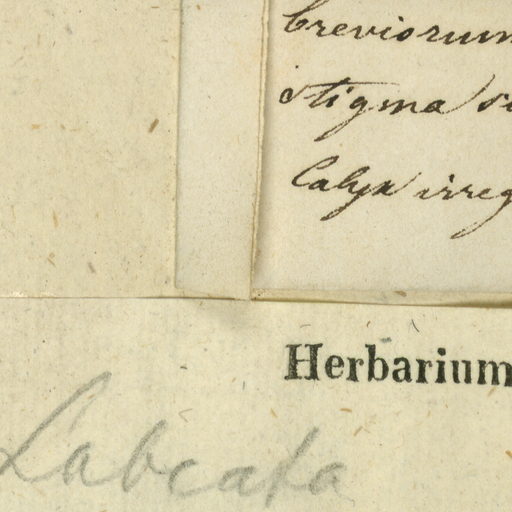 breviorum
stigma
Calyx irreg
Herbarium
Labcata